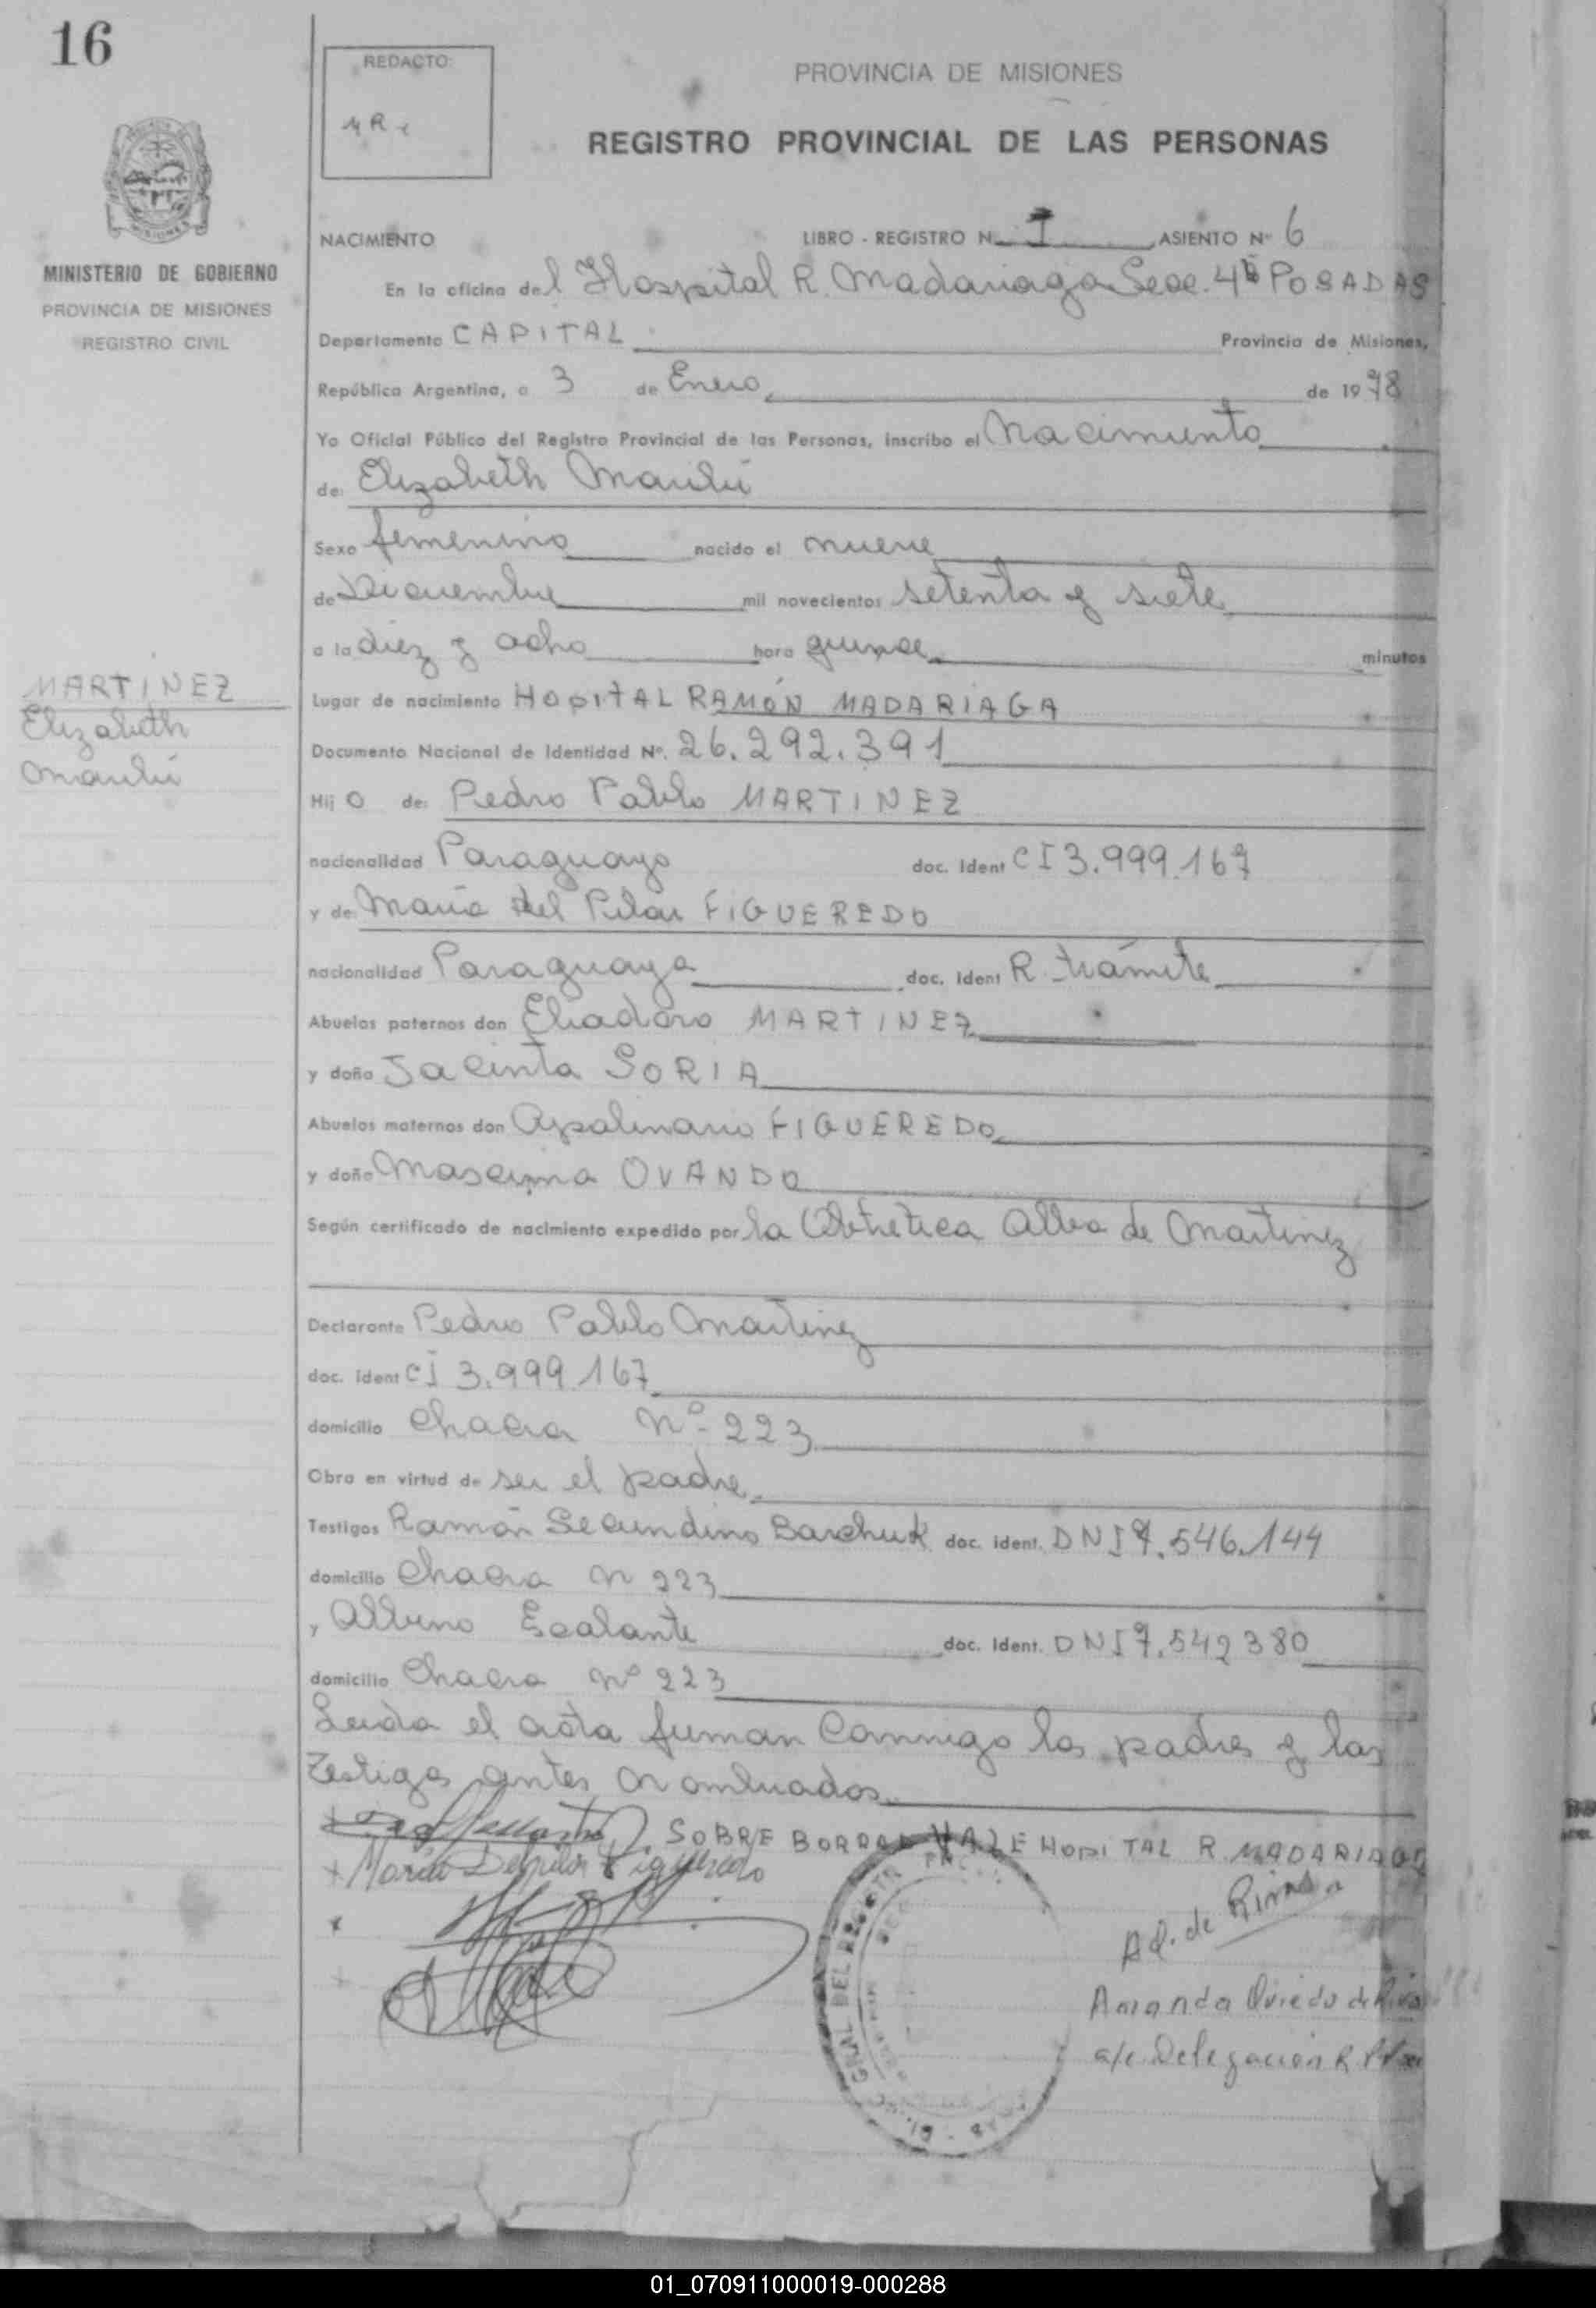 16
REDACTO:
PROVINCIA DE MISIONES
REGISTRO PROVINCIAL DE LAS PERSONAS
NACIMIENTO
LIBRO - REGISTRO N. I ASIENTO Nº 6
MINISTERIO DE GOBIERNO
PROVINCIA DE MISIONES
REGISTRO CIVIL
En la oficina del Hospital R. Madariaga Secc. 4ª POSADAS
Departamento CAPITAL Provincia de Misiones,
República Argentina, a 3 de Enero de 1978
Yo Oficial Público del Registro Provincial de las Personas, inscribo el Nacimiento
de: Elizabeth Marilú
Sexo femenino nacido el nueve
de Diciembre mil novecientos setenta y siete
a la diez y ocho hora quince minutos
MARTINEZ
Elizabeth
Marilú
Lugar de nacimiento HOPITAL RAMÓN MADARIAGA
Documento Nacional de Identidad Nº. 26.292.391
Hij O de: Pedro Pablo MARTINEZ
nacionalidad Paraguayo doc. Ident CI 3.999.167
y de: María del Pilar FIGUEREDO
nacionalidad Paraguaya doc. Ident R. trámite
Abuelos paternos don Eliadoro MARTINEZ
y doña Jacinta SORIA
Abuelos maternos don Apolinario FIGUEREDO
y doña Mascima OVANDO
Según certificado de nacimiento expedido por la Obtetrica Alba de Martinez
Declarante Pedro Pablo Martinez
doc. ident CI 3.999.167
domicilio Chacra Nº 223
Obra en virtud de ser el padre
Testigos Ramón Secundino Barchuk doc. ident. DNI 7.546.144
domicilio Chacra N 223
y Albino Escalante doc. Ident. DNI 7.542380
domicilio Chacra Nº 223
Leída el acta firman conmigo los padres y los
testigos antes nombrados.
SOBRE BORRADO VALE HOPITAL R. MADARIAGA
María Delpilar Figueredo
GRAL DEL REGISTR
Ad. de Rivas
Amanda Oviedo de Rivas
a/c. Delegación R.
01_070911000019-000288